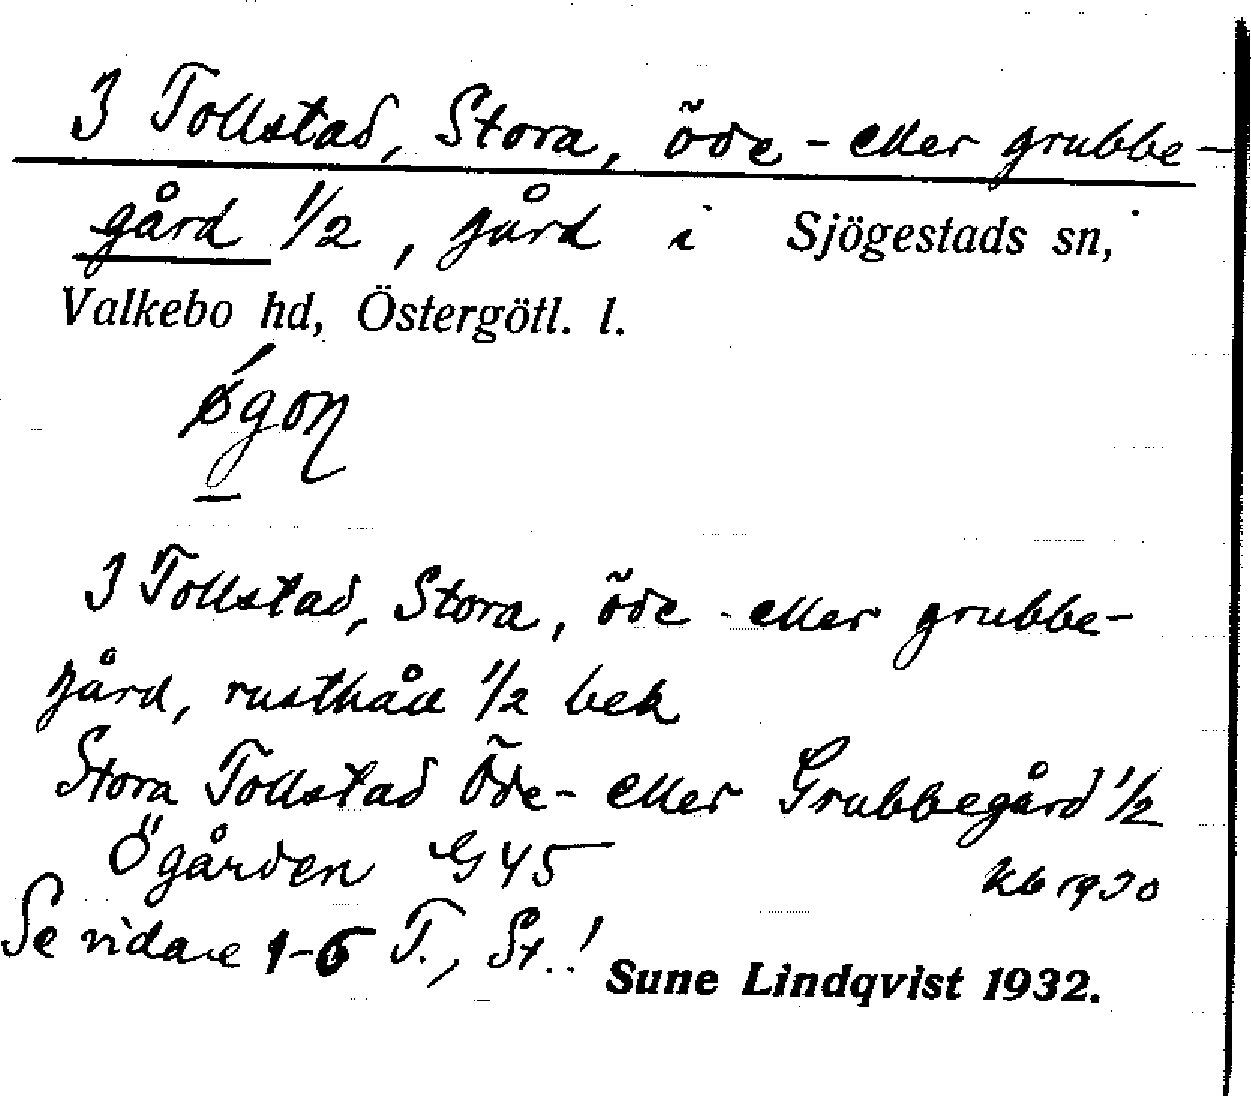 3 Tollstad, Stora, öde- eller grubbe-
gård 1/2, gård i Sjögestads sn,
Valkebo hd, Östergötl. l.
ǿgoꞑ
3 Tollstad, Stora, öde- eller grubbe-
gård, rusthåll 1/2 bek
Stora Tollstad Öde- eller Grubbegård 1/2
Ögården G 45 kb 1930
Se vidare 1-6 T., St..!
Sune Lindqvist 1932.